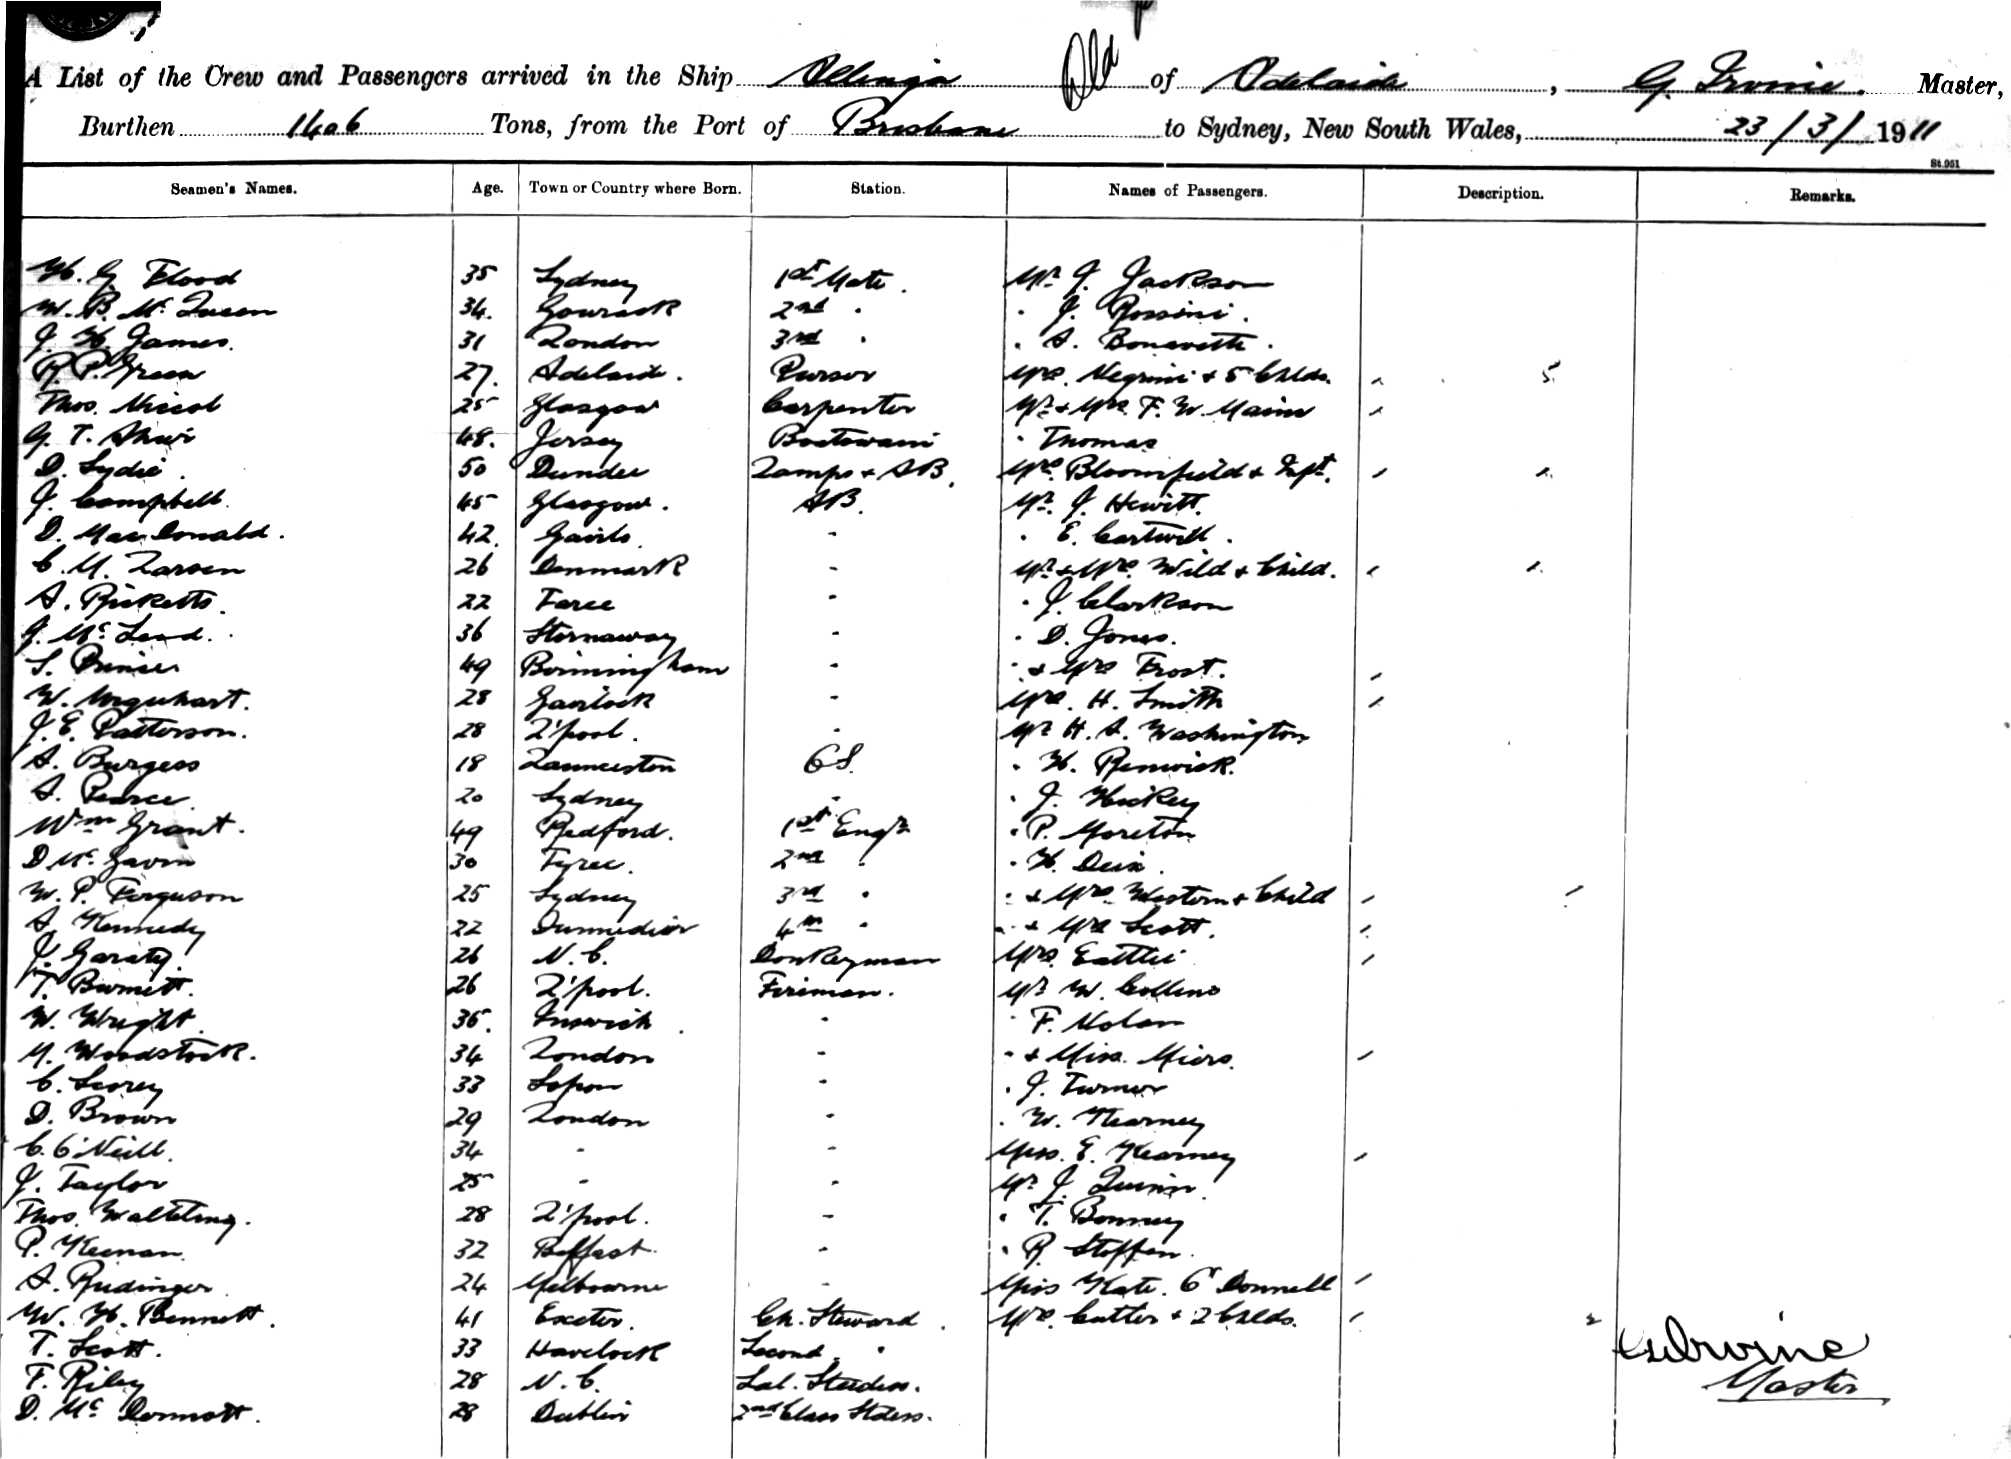 A List of the Crew and Passengers arrived in the Ship Allinga of Adelaide, G. Irvine. Master,
Burthen 1406 Tons, from the Port of Brisbane to Sydney, New South Wales, 23/3/1911
St.951
Seamen's Names. Age. Town or Country where Born. Station. Names of Passengers. Description. Remarks.
H. G. Flood 35 Sydney 1st Mate. Mr J. Jackson
W. B. Mc Queen 34. Gourock 2nd " " J. Rossini.
J. H. James. 31 London 3rd " " A.
R. P. Green 27. Adelaide. Purser Mrs. Negrini + 5 Childn. 5
Thos. Nicol 25 Glasgow Carpenter Mr + Mrs. F. W. Mainn
G. T. 48. Jersey Boatswain " Thomas
D. Lydie. 50 Dundee Lamps + AB. Mrs. Bloomfield + Inft.
J. Campbell. 45 Glasgow. AB. Mr. J. Hewitt.
D. MacDonald. 42. " " E.
C. M. Larsen 26 Denmark " Mr + Mrs. Wild + Child.
A. Ricketts. 22 Taree " " J. Clarkson
J. Mc Leod. 36 Stornaway " " D. Jones.
S. 49 Birmingham " " + Mrs Frost.
W. Urquhart. 28 Gairlock " Mrs. H. Smith
J. E. Patterson. 28 L'pool. " Mr H. A. Washington
A. Burgess 18 Launceston OS. " H. Renwick.
A. Pearce. 20 Sydney " " J. Hickey
Wm Grant. 49 Redford. 1st Engr " P. Moreton
D Mc Gavin 30 Tyree. 2nd " " H. Dein.
W. P. Ferguson 25 Sydney 3rd " " + Mrs. Western + Child
A. Kennedy 22 4th " " + Mrs Scott.
J. Garaty 26 N. C. Donkeyman Mrs.
T. Burnett. 26 L'pool. Fireman. Mr W. Collins
W. Wright. 35. " " F. Nolan
M. Woodstock. 34 London " " + Miss. Miers.
C. Scorey 33 " " J. Turner
D. Brown 29 London " " W. Kearney
C. O'Neill. 34 " " Mrs. E. Kearney
J. Taylor 25 " " Mr J. Quinn.
Thos. 28 L'pool. " " T. Bonney
P. Keenan. 32 Belfast. " " R. Steffen.
A. Rudinger 24 Melbourne " Miss Kate. O'Donnell
W. H. Bennett. 41 Exeter. Ch. Steward. Mrs. Cutter + 2 Childs. 2
T. Scott. 33 Havelock Second. "
F. Riley 28 N. C. Sal. Stewdss.
D. Mc Dermott. 28 Dublin 2nd Class Stdess.
G Irvine
Master